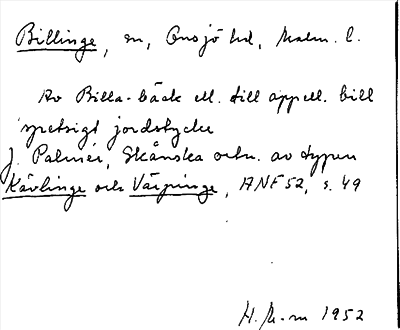 Billinge, sn, Onsjö hd, Malm. l.
Av Billa-bäck el. till appell. bill
'spetsigt jordstycke
J. Palmér, Skånska ortn. av typen
Kävlinge och Värpinge, ANF 52, s. 49
H. M-m 1952